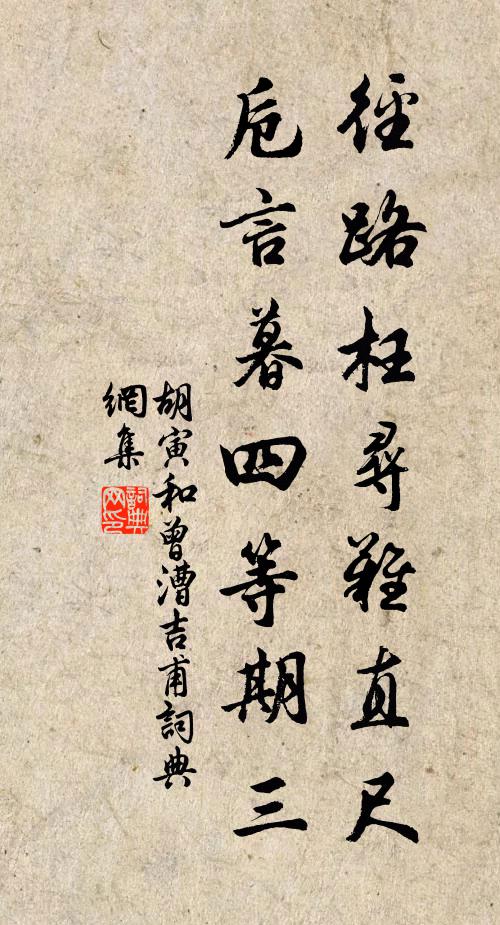 徑路枉尋難直尺
卮言暮四等期三
胡寅和曾漕吉甫詞典
網集
詞典
网印